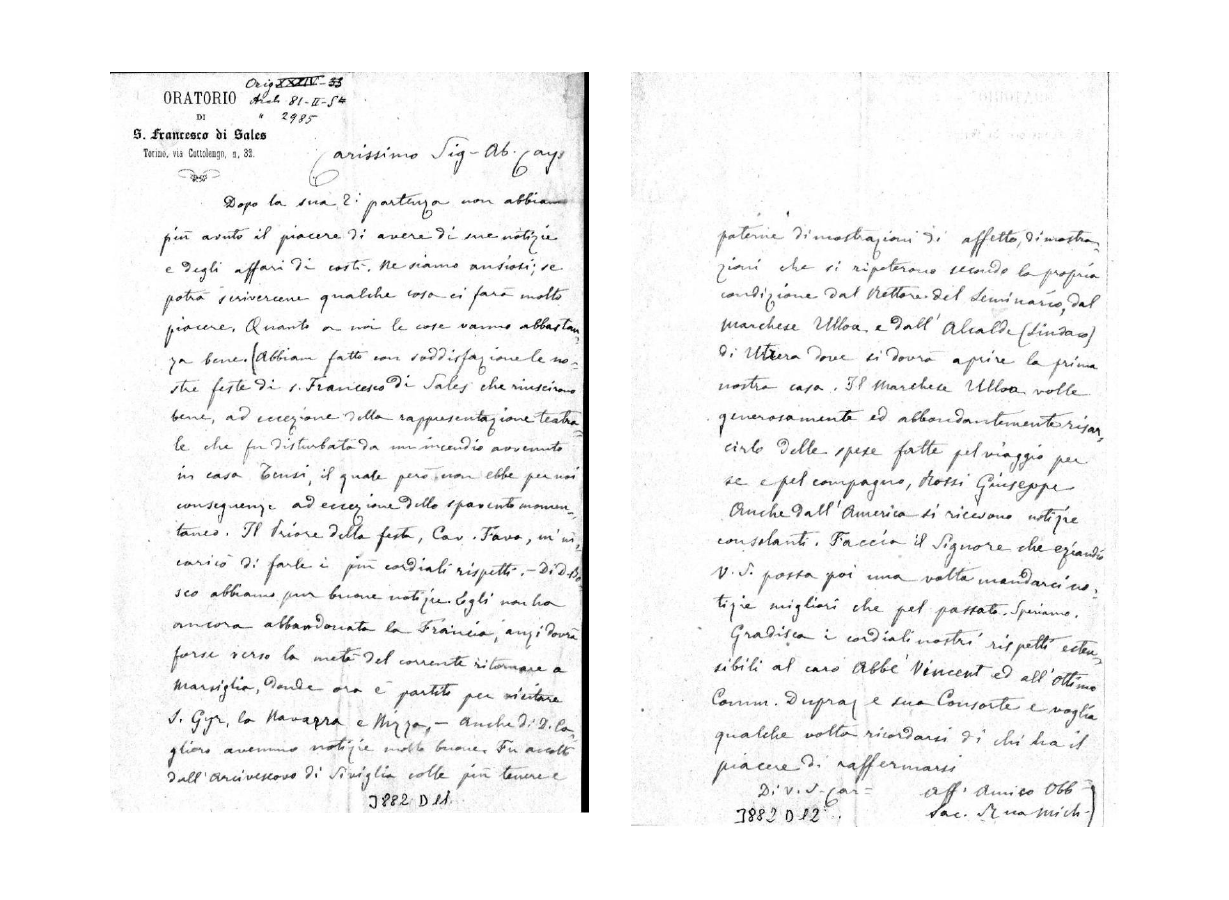 Orig XXXIV-33
ORATORIO
Arch. 81-II-54
DI
" 2985
S. Francesco di Sales
Torino, via Cottolengo, n. 32.
Carissimo Sig- Ab. Cays
Dopo la sua 2ª partenza non abbiam
più avuto il piacere di avere di sue notizie
e degli affari di costì. Ne siamo ansiosi; se
potrà scrivercene qualche cosa ci farà molto
piacere. Quanto a noi le cose vanno abbastan-
za bene. (Abbiam fatto con soddisfazione le no-
stre feste di S. Francesco di Sales che riuscirono
bene, ad eccezione della rappresentazione teatra-
le che fu disturbata da un incendio avvenuto
in casa Tensi, il quale però non ebbe per noi
conseguenze ad eccezione dello spavento momen-
taneo. Il Priore della festa, Cav. Fava, m'in-
caricò di farle i più cordiali rispetti. - Di D. Bo-
sco abbiamo pur buone notizie. Egli non ha
ancora abbandonata la Francia, anzi dovrà
forse verso la metà del corrente ritornare a
Marsiglia, donde ora è partito per visitare
S. Cyr, la Navarra e Nizza, - Anche di D. Ca-
gliero avemmo notizie molto buone. Fu accolto
dall'Arcivescovo di Siviglia colle più tenere e
3882 D 11
paterne dimostrazioni di affetto, dimostra-
zioni che si ripeterono secondo la propria
condizione dal Rettore del Seminario, dal
Marchese Ulloa e dall'Alcalde (Sindaco)
di Utrera dove si dovrà aprire la prima
nostra casa. Il Marchese Ulloa volle
generosamente ed abbondantemente risar-
cirlo delle spese fatte pel viaggio per
se e pel compagno, Rossi Giuseppe
Anche dall'America si ricevono notizie
consolanti. Faccia il Signore che eziandio
V. S. possa poi una volta mandarci no-
tizie migliori che pel passato. Speriamo.
Gradisca i cordiali nostri rispetti esten-
sibili al caro Abbé Vincent ed all'ottimo
Comm. Dupraz e sua Consorte e voglia
qualche volta ricordarsi di chi ha il
piacere di raffermarsi
Di V. S. Car=
aff. Amico Obb=
Sac. Rua Mich-
3882 D 12